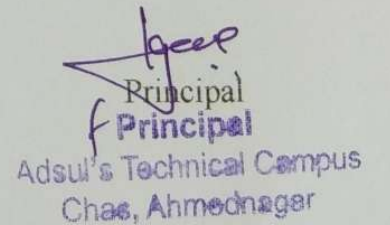 Principal
Principal
Adsul's Technical Campus
Chas, Ahmednagar